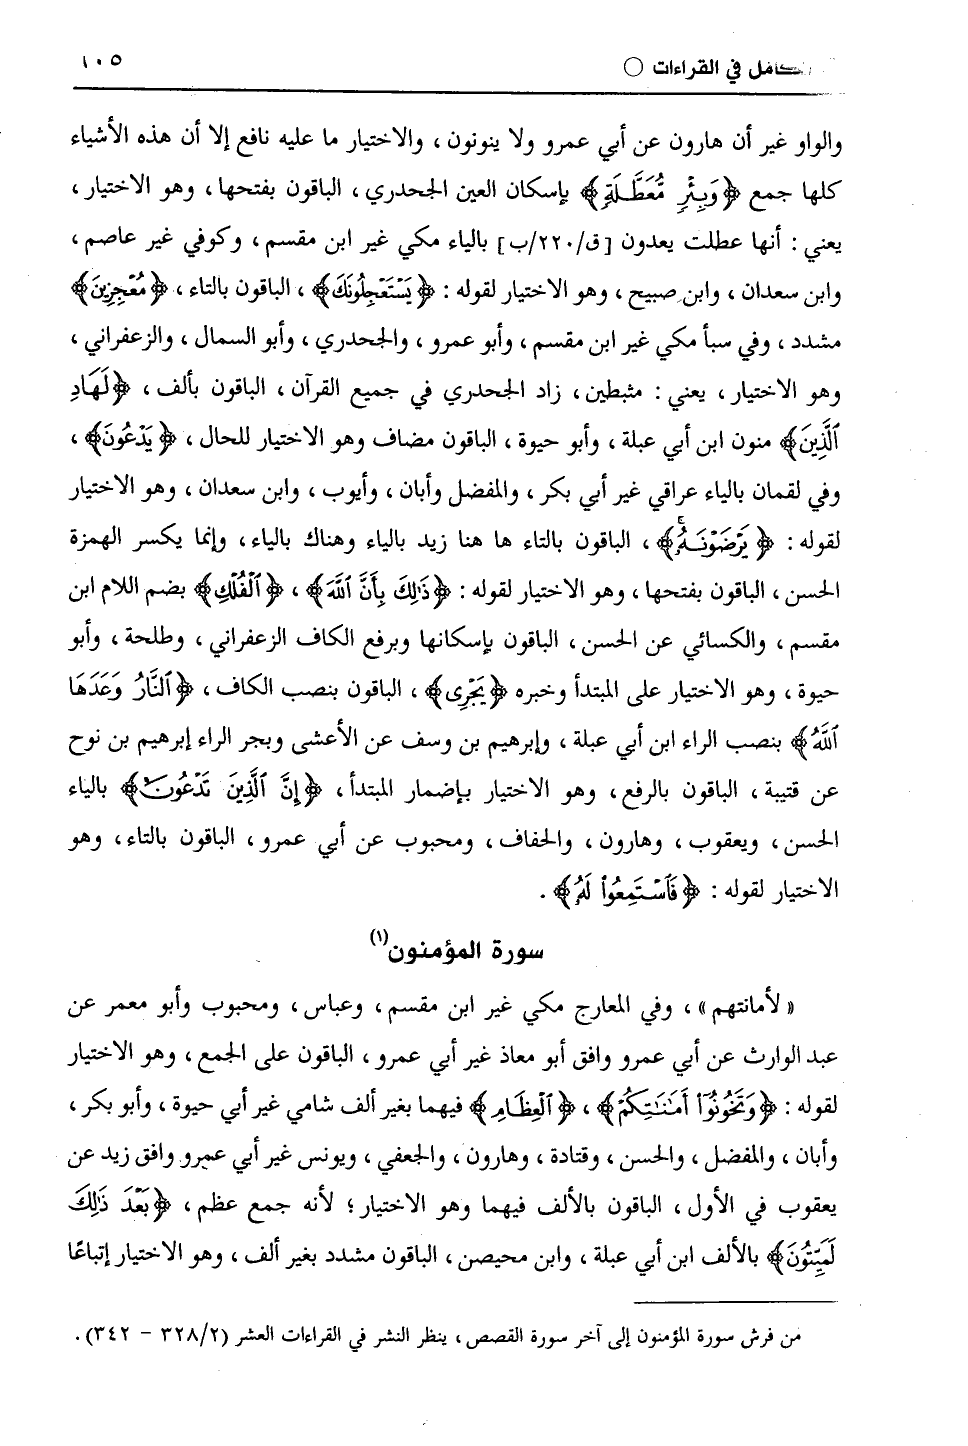 الكامل في القراءات ○ ١٠٥
والواو غير أن هارون عن أبي عمرو ولا ينونون، والاختيار ما عليه نافع إلا أن هذه الأشياء
كلها جمع ﴿وَبِئْرٍ مُّعَطَّلَةٍ﴾ بإسكان العين الجحدري، الباقون بفتحها، وهو الاختيار،
يعني: أنها عطلت يعدون [ق/٢٢٠/ب] بالياء مكي غير ابن مقسم، وكوفي غير عاصم،
وابن سعدان، وابن صبيح، وهو الاختيار لقوله: ﴿يَسْتَعْجِلُونَكَ﴾، الباقون بالتاء، ﴿مُعْجِزِينَ﴾
مشدد، وفي سبأ مكي غير ابن مقسم، وأبو عمرو، والجحدري، وأبو السمال، والزعفراني،
وهو الاختيار، يعني: مثبطين، زاد الجحدري في جميع القرآن، الباقون بألف، ﴿لَهَادِ
ٱلَّذِينَ﴾ منون ابن أبي عبلة، وأبو حيوة، الباقون مضاف وهو الاختيار للحال، ﴿يَدْعُونَ﴾،
وفي لقمان بالياء عراقي غير أبي بكر، والمفضل وأبان، وأيوب، وابن سعدان، وهو الاختيار
لقوله: ﴿يَرْضَوْنَهُۥ﴾، الباقون بالتاء ها هنا زيد بالياء وهناك بالياء، وإنما يكسر الهمزة
الحسن، الباقون بفتحها، وهو الاختيار لقوله: ﴿ذَٰلِكَ بِأَنَّ ٱللَّهَ﴾، ﴿ٱلْفُلْكِ﴾ بضم اللام ابن
مقسم، والكسائي عن الحسن، الباقون بإسكانها وبرفع الكاف الزعفراني، وطلحة، وأبو
حيوة، وهو الاختيار على المبتدأ وخبره ﴿يَجْرِى﴾، الباقون بنصب الكاف، ﴿ٱلنَّارُ وَعَدَهَا
ٱللَّهُ﴾ بنصب الراء ابن أبي عبلة، وإبرهيم بن وسف عن الأعشى وبجر الراء إبرهيم بن نوح
عن قتيبة، الباقون بالرفع، وهو الاختيار بإضمار المبتدأ، ﴿إِنَّ ٱلَّذِينَ تَدْعُونَ﴾ بالياء
الحسن، ويعقوب، وهارون، والخفاف، ومحبوب عن أبي عمرو، الباقون بالتاء، وهو
الاختيار لقوله: ﴿فَٱسْتَمِعُوا۟ لَهُۥ﴾.
سورة المؤمنون(١)
«لأمانتهم»، وفي المعارج مكي غير ابن مقسم، وعباس، ومحبوب وأبو معمر عن
عبد الوارث عن أبي عمرو وافق أبو معاذ غير أبي عمرو، الباقون على الجمع، وهو الاختيار
لقوله: ﴿وَتَخُونُوٓا۟ أَمَٰنَٰتِكُمْ﴾، ﴿ٱلْعِظَامِ﴾ فيهما بغير ألف شامي غير أبي حيوة، وأبو بكر،
وأبان، والمفضل، والحسن، وقتادة، وهارون، والجعفي، ويونس غير أبي عمرو وافق زيد عن
يعقوب في الأول، الباقون بالألف فيهما وهو الاختيار؛ لأنه جمع عظم، ﴿بَعْدَ ذَٰلِكَ
لَمَيِّتُونَ﴾ بالألف ابن أبي عبلة، وابن محيصن، الباقون مشدد بغير ألف، وهو الاختيار إتباعًا
من فرش سورة المؤمنون إلى آخر سورة القصص، ينظر النشر في القراءات العشر (٣٢٨/٢ - ٣٤٢).